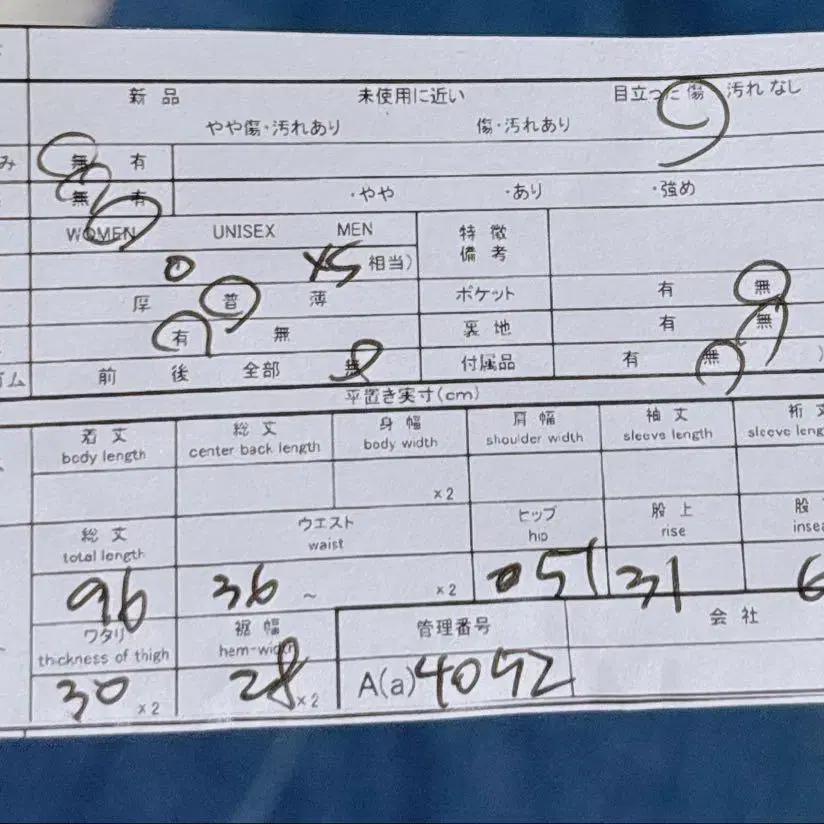 新品 未使用に近い 目立った傷汚れなし
やや傷・汚れあり 傷・汚れあり
み 無 有
無 有 ・やや ・あり ・強め
WOMEN UNISEX MEN 特徴
備考
0 XS 相当)
厚 普 薄 ポケット 有 無
有 無 裏地 有 無
ゴム 前 後 全部 無 付属品 有 無 )
平置き実寸(cm)
着丈 総丈 身幅 肩幅 袖丈 裄丈
body length center back length body width shoulder width sleeve length sleeve leng
×2
総丈 ウエスト ヒップ 股上 股
total length waist hip rise insea
96 36 ~ ×2 51 31 6
ワタリ 裾幅 管理番号 会社
thickness of thigh hem-width
30 ×2 28 ×2 A(a)4052